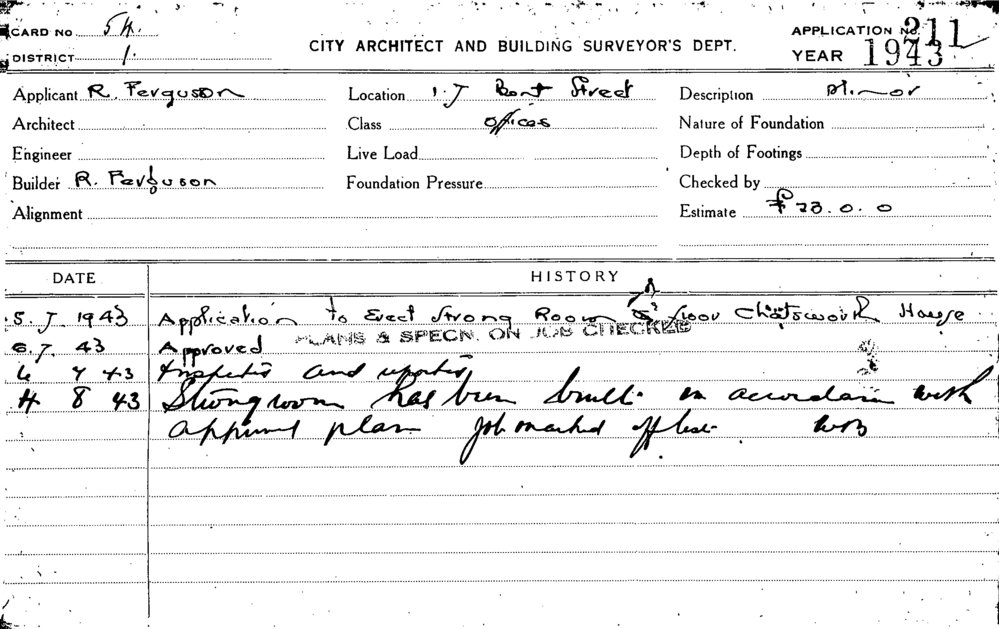 CARD NO 54.
DISTRICT 1.
CITY ARCHITECT AND BUILDING SURVEYOR'S DEPT.
APPLICATION No. 211
YEAR 1943
Applicant R. Ferguson
Location 1.7 Bent Street
Description Minor
Architect
Class Offices
Nature of Foundation
Engineer
Live Load
Depth of Footings
Builder R. Ferguson
Foundation Pressure
Checked by
Alignment
Estimate £73.0.0
DATE HISTORY
5.7.1943 Application to Erect Strong Room floor Chatsworth House
6.7.43 Approved PLANS & SPECN. ON JOB CHECKED
7 43 Inspected and reported
4 8 43 Strongroom has been built in accordance with
approved plan Job marked off list